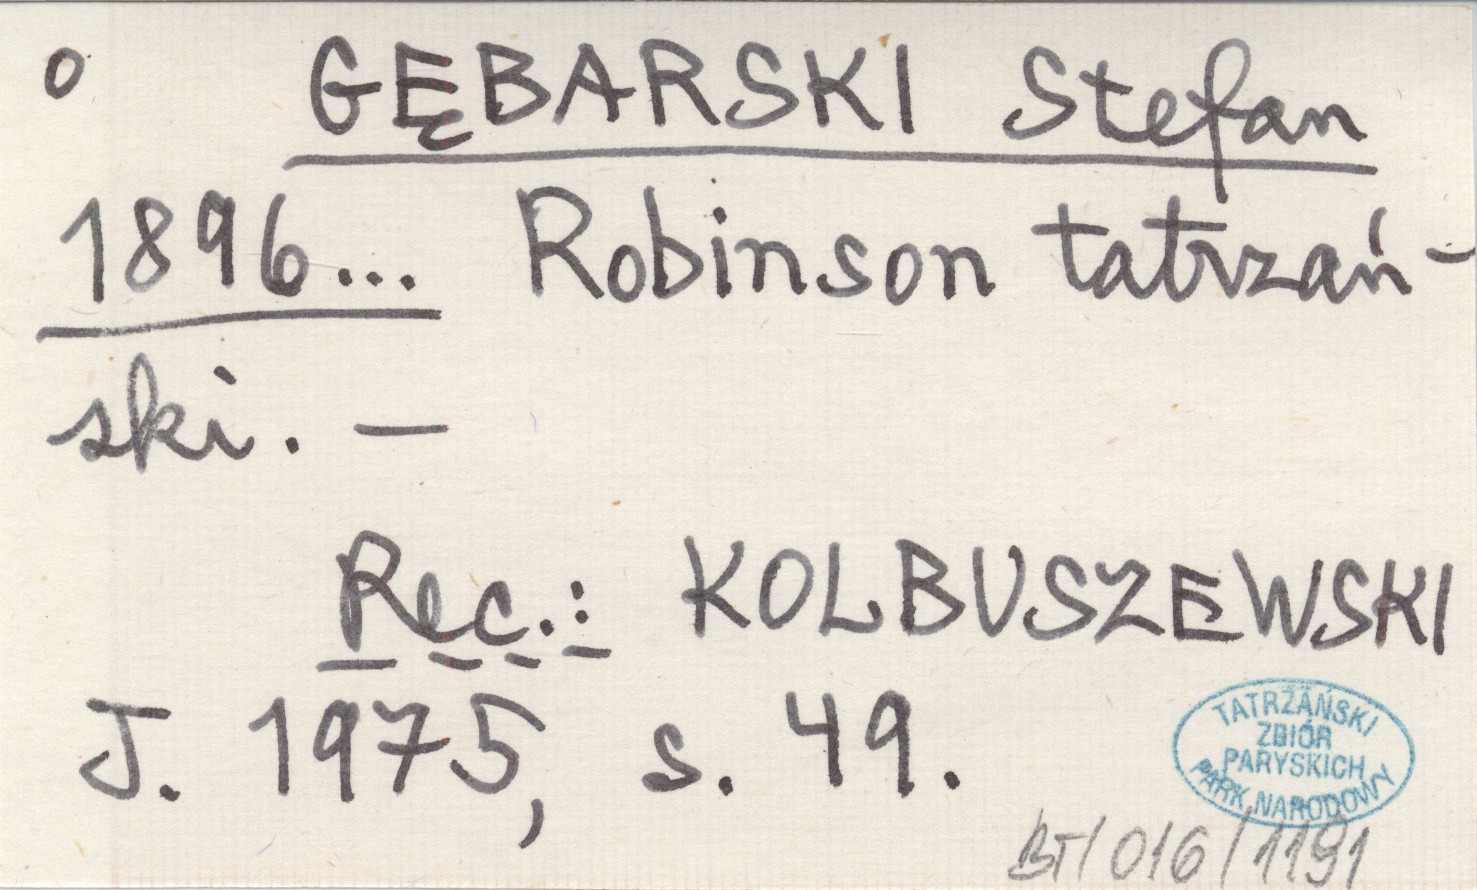 o GĘBARSKI Stefan
1896... Robinson tatrzań-
ski. —
Rec.: KOLBUSZEWSKI
J. 1975, s. 49.
TATRZAŃSKI
ZBIÓR
PARYSKICH
PARK NARODOWY
BT/016/1191